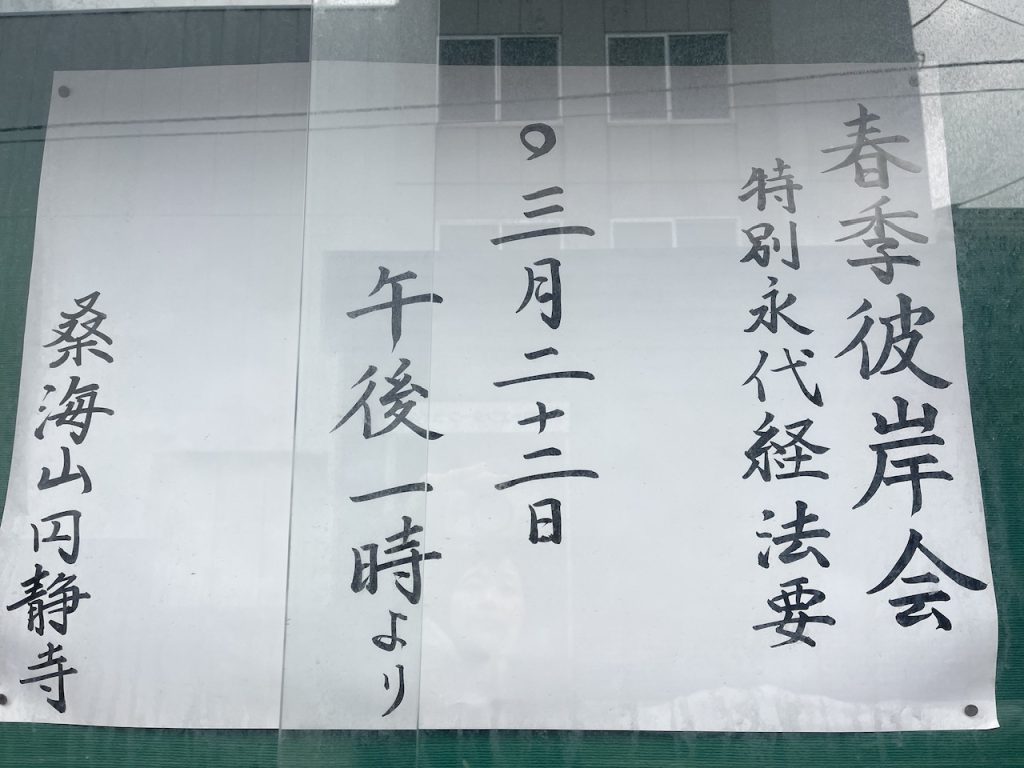 春季彼岸会
特別永代経法要
○三月二十二日
午後一時より
桑海山円静寺